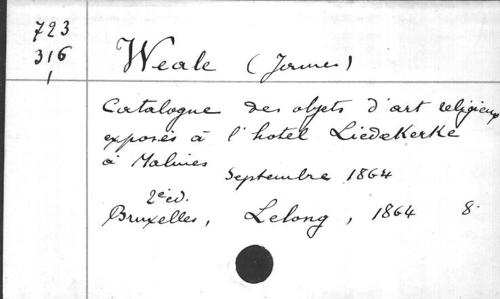 723
316
1
Weale (James)
Catalogue des objets d'art religieux
exposés à l'hotel Liedekerke
à Malines
Septembre 1864
2e éd.
Bruxelles, Lelong, 1864 8.